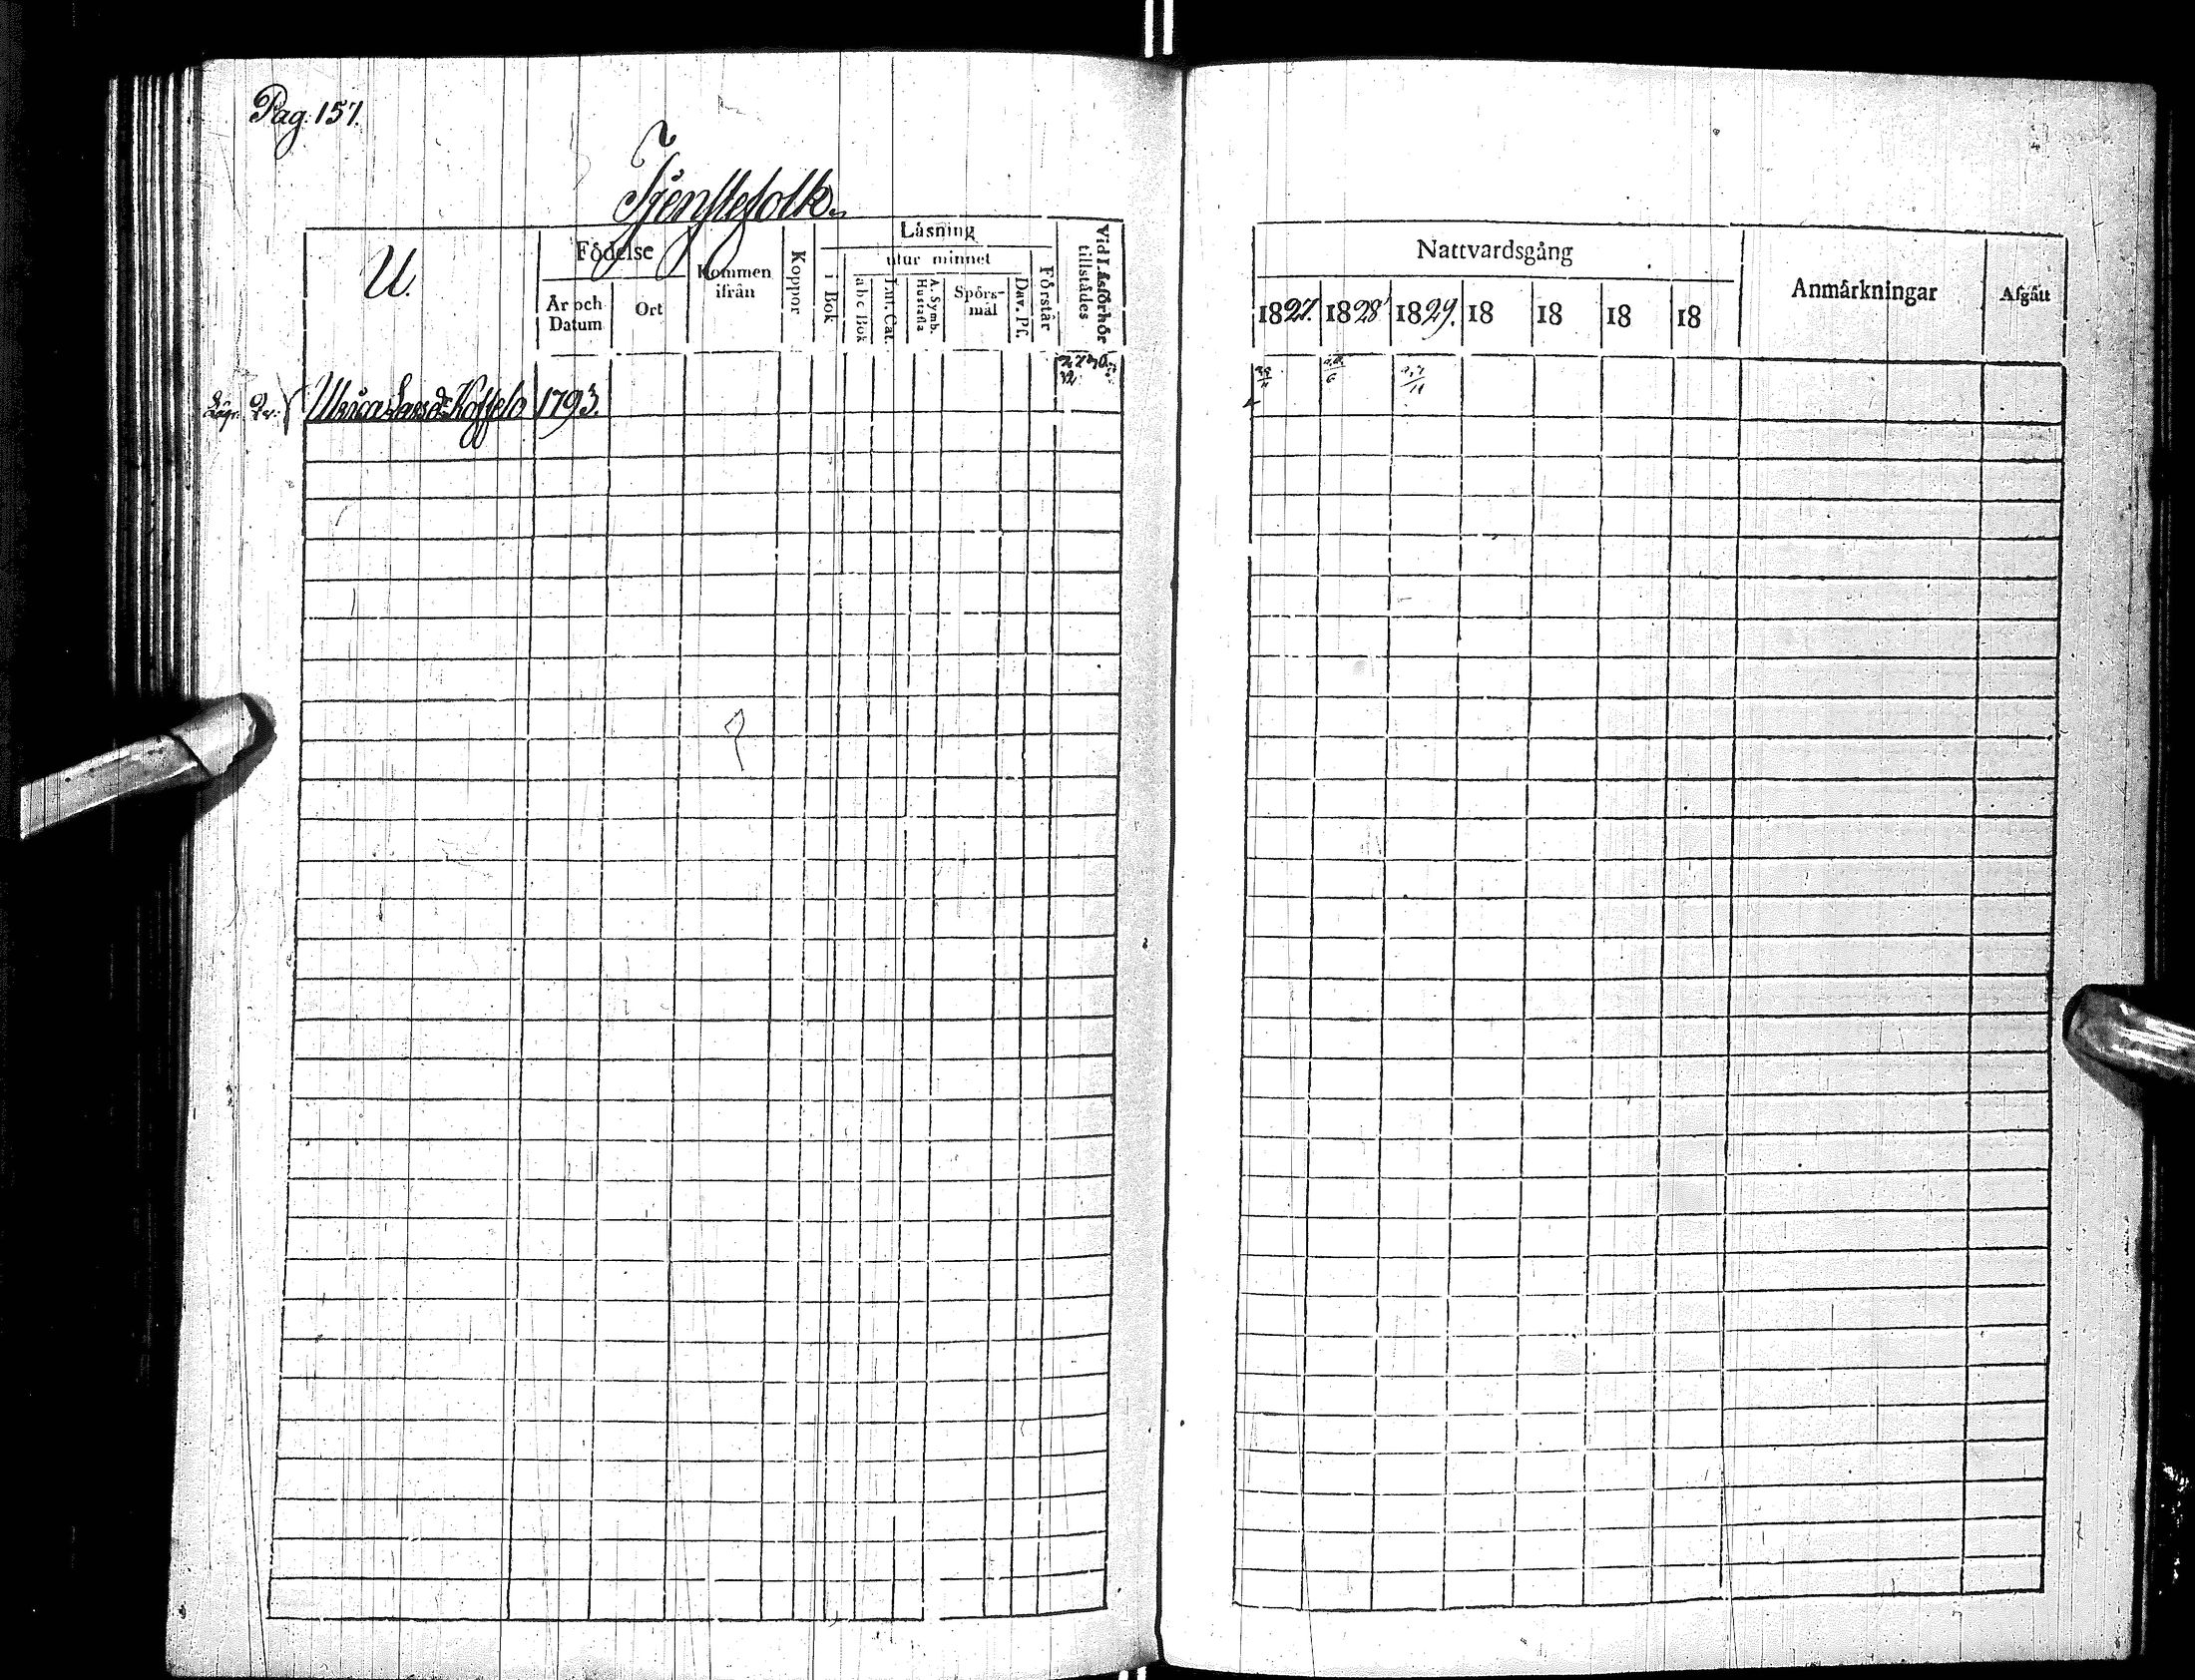 Pag. 157.
Tjenstefolk.
U.
Födelse
År och Datum
Ort
Kommen ifrån
Koppor
Läsning
i Bok
utur minnet
abc Bok
Lut. Cat.
A. Symb. Hustafla
Spörsmål
Dav. Ps.
Förstår
Vid Läsförhör tillstädes
Nattvardsgång
1827. 1828 1829. 18 18 18 18
Anmärkningar
Afgått
Ulrica Larsd:r 1793.